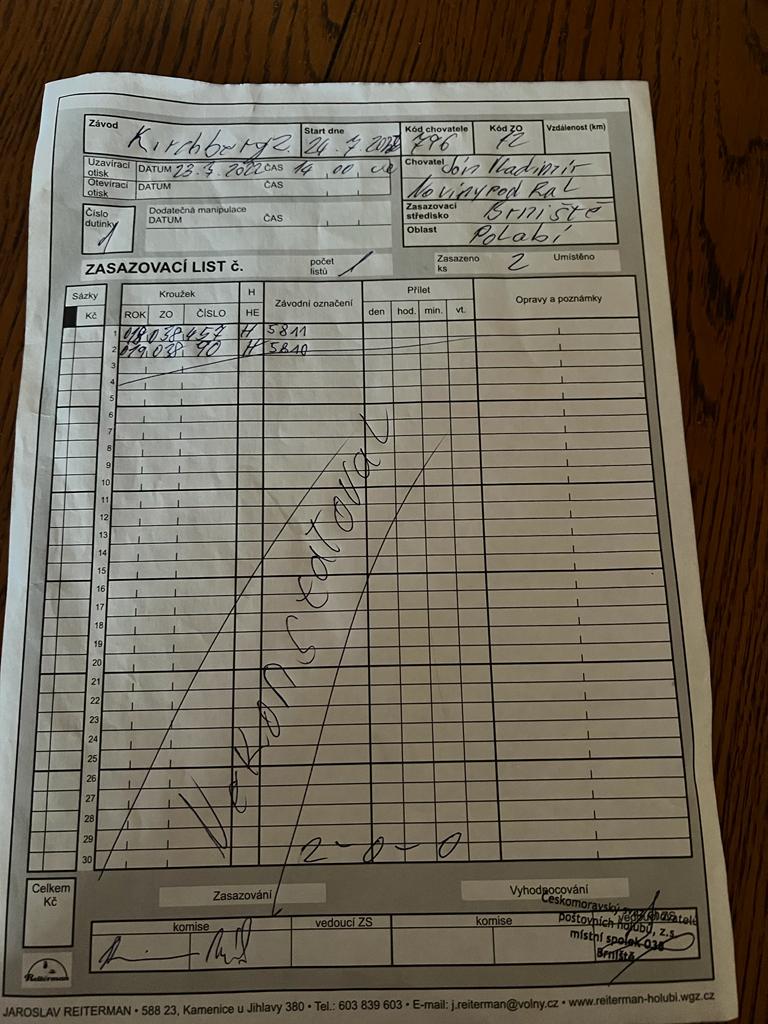 Závod Kirchberg 2. Start dne 24. 7. 2022 Kód chovatele 796 Kód ZO 12 Vzdálenost (km)
Uzavírací otisk DATUM 23. 7. 2022 ČAS 14 00
Otevírací otisk DATUM ČAS
Chovatel Vladimír
Noviny pod Ral
Číslo dutinky 1 Dodatečná manipulace DATUM ČAS
Zasazovací středisko Brniště
Oblast Polabí
ZASAZOVACÍ LIST č. počet listů 1 Zasazeno ks 2 Umístěno
Sázky Kroužek H Závodní označení Přílet Opravy a poznámky
Kč ROK ZO ČÍSLO HE den hod. min. vt.
1 018 038 457 H 5811
2 019 038 90 H 5810
3
4
5
6
7
8
9
10
11
12
13
14
15
16
17
18
19
20
21
22
23
24
25
26
27
28
29
30
Nekonstatoval
2-0-0
Celkem Kč Zasazování Vyhodnocování
komise vedoucí ZS komise
Českomoravský svaz chovatelů
poštovních holubů, z.s.
místní spolek 038
Brniště
Reiterman
JAROSLAV REITERMAN • 588 23, Kamenice u Jihlavy 380 • Tel.: 603 839 603 • E-mail: j.reiterman@volny.cz • www.reiterman-holubi.wgz.cz